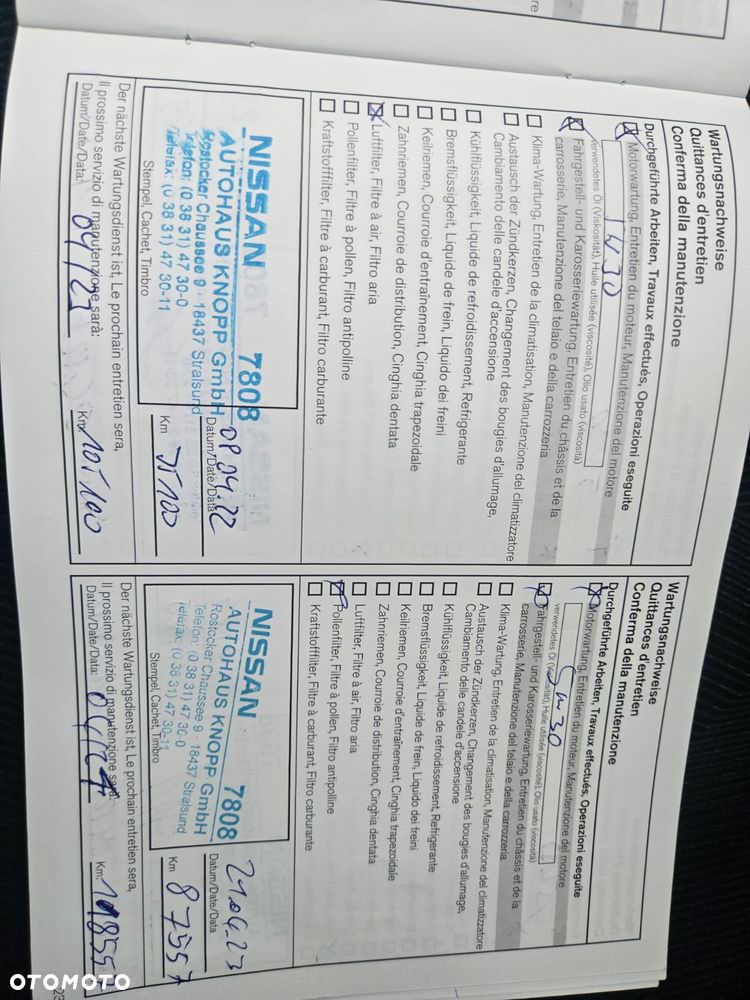 Wartungsnachweise
Quittances d'entretien
Conferma della manutenzione
Durchgeführte Arbeiten, Travaux effectués, Operazioni eseguite
Motorwartung, Entretien du moteur, Manutenzione del motore
verwendetes Öl (Viskosität), Huile utilisée (viscosité), Olio usato (viscosità)
Fahrgestell- und Karosseriewartung, Entretien du châssis et de la
carrosserie, Manutenzione del telaio e della carrozzeria
Klima-Wartung, Entretien de la climatisation, Manutenzione del climatizzatore
Austausch der Zündkerzen, Changement des bougies d'allumage,
Cambiamento delle candele d'accensione
Kühlflüssigkeit, Liquide de refroidissement, Refrigerante
Bremsflüssigkeit, Liquide de frein, Liquido dei freini
Keilriemen, Courroie d'entraînement, Cinghia trapezoidale
Zahnriemen, Courroie de distribution, Cinghia dentata
Luftfilter, Filtre à air, Filtro aria
Pollenfilter, Filtre à pollen, Filtro antipolline
Kraftstofffilter, Filtre à carburant, Filtro carburante
NISSAN 7808
AUTOHAUS KNOPP GmbH
Rostocker Chaussee 9 · 18437 Stralsund
Telefon: (0 38 31) 47 30-0
Telefax: (0 38 31) 47 30-11
Stempel, Cachet, Timbro
08.04.22
Datum/Date/Data
75100
Km
Der nächste Wartungsdienst ist, Le prochain entretien sera,
Il prossimo servizio di manutenzione sarà:
Datum/Date/Data: 04/23
Km: 105100
Wartungsnachweise
Quittances d'entretien
Conferma della manutenzione
Durchgeführte Arbeiten, Travaux effectués, Operazioni eseguite
Motorwartung, Entretien du moteur, Manutenzione del motore
5W30
verwendetes Öl (Viskosität), Huile utilisée (viscosité), Olio usato (viscosità)
Fahrgestell- und Karosseriewartung, Entretien du châssis et de la
carrosserie, Manutenzione del telaio e della carrozzeria
Klima-Wartung, Entretien de la climatisation, Manutenzione del climatizzatore
Austausch der Zündkerzen, Changement des bougies d'allumage,
Cambiamento delle candele d'accensione
Kühlflüssigkeit, Liquide de refroidissement, Refrigerante
Bremsflüssigkeit, Liquide de frein, Liquido dei freini
Keilriemen, Courroie d'entraînement, Cinghia trapezoidale
Zahnriemen, Courroie de distribution, Cinghia dentata
Luftfilter, Filtre à air, Filtro aria
Pollenfilter, Filtre à pollen, Filtro antipolline
Kraftstofffilter, Filtre à carburant, Filtro carburante
NISSAN 7808
AUTOHAUS KNOPP GmbH
Rostocker Chaussee 9 · 18437 Stralsund
Telefon: (0 38 31) 47 30-0
Telefax: (0 38 31) 47 30-11
Stempel, Cachet, Timbro
21.04.23
Datum/Date/Data
87557
Km
Der nächste Wartungsdienst ist, Le prochain entretien sera,
Il prossimo servizio di manutenzione sarà:
Datum/Date/Data: 04/24
Km:
OTOMOTO